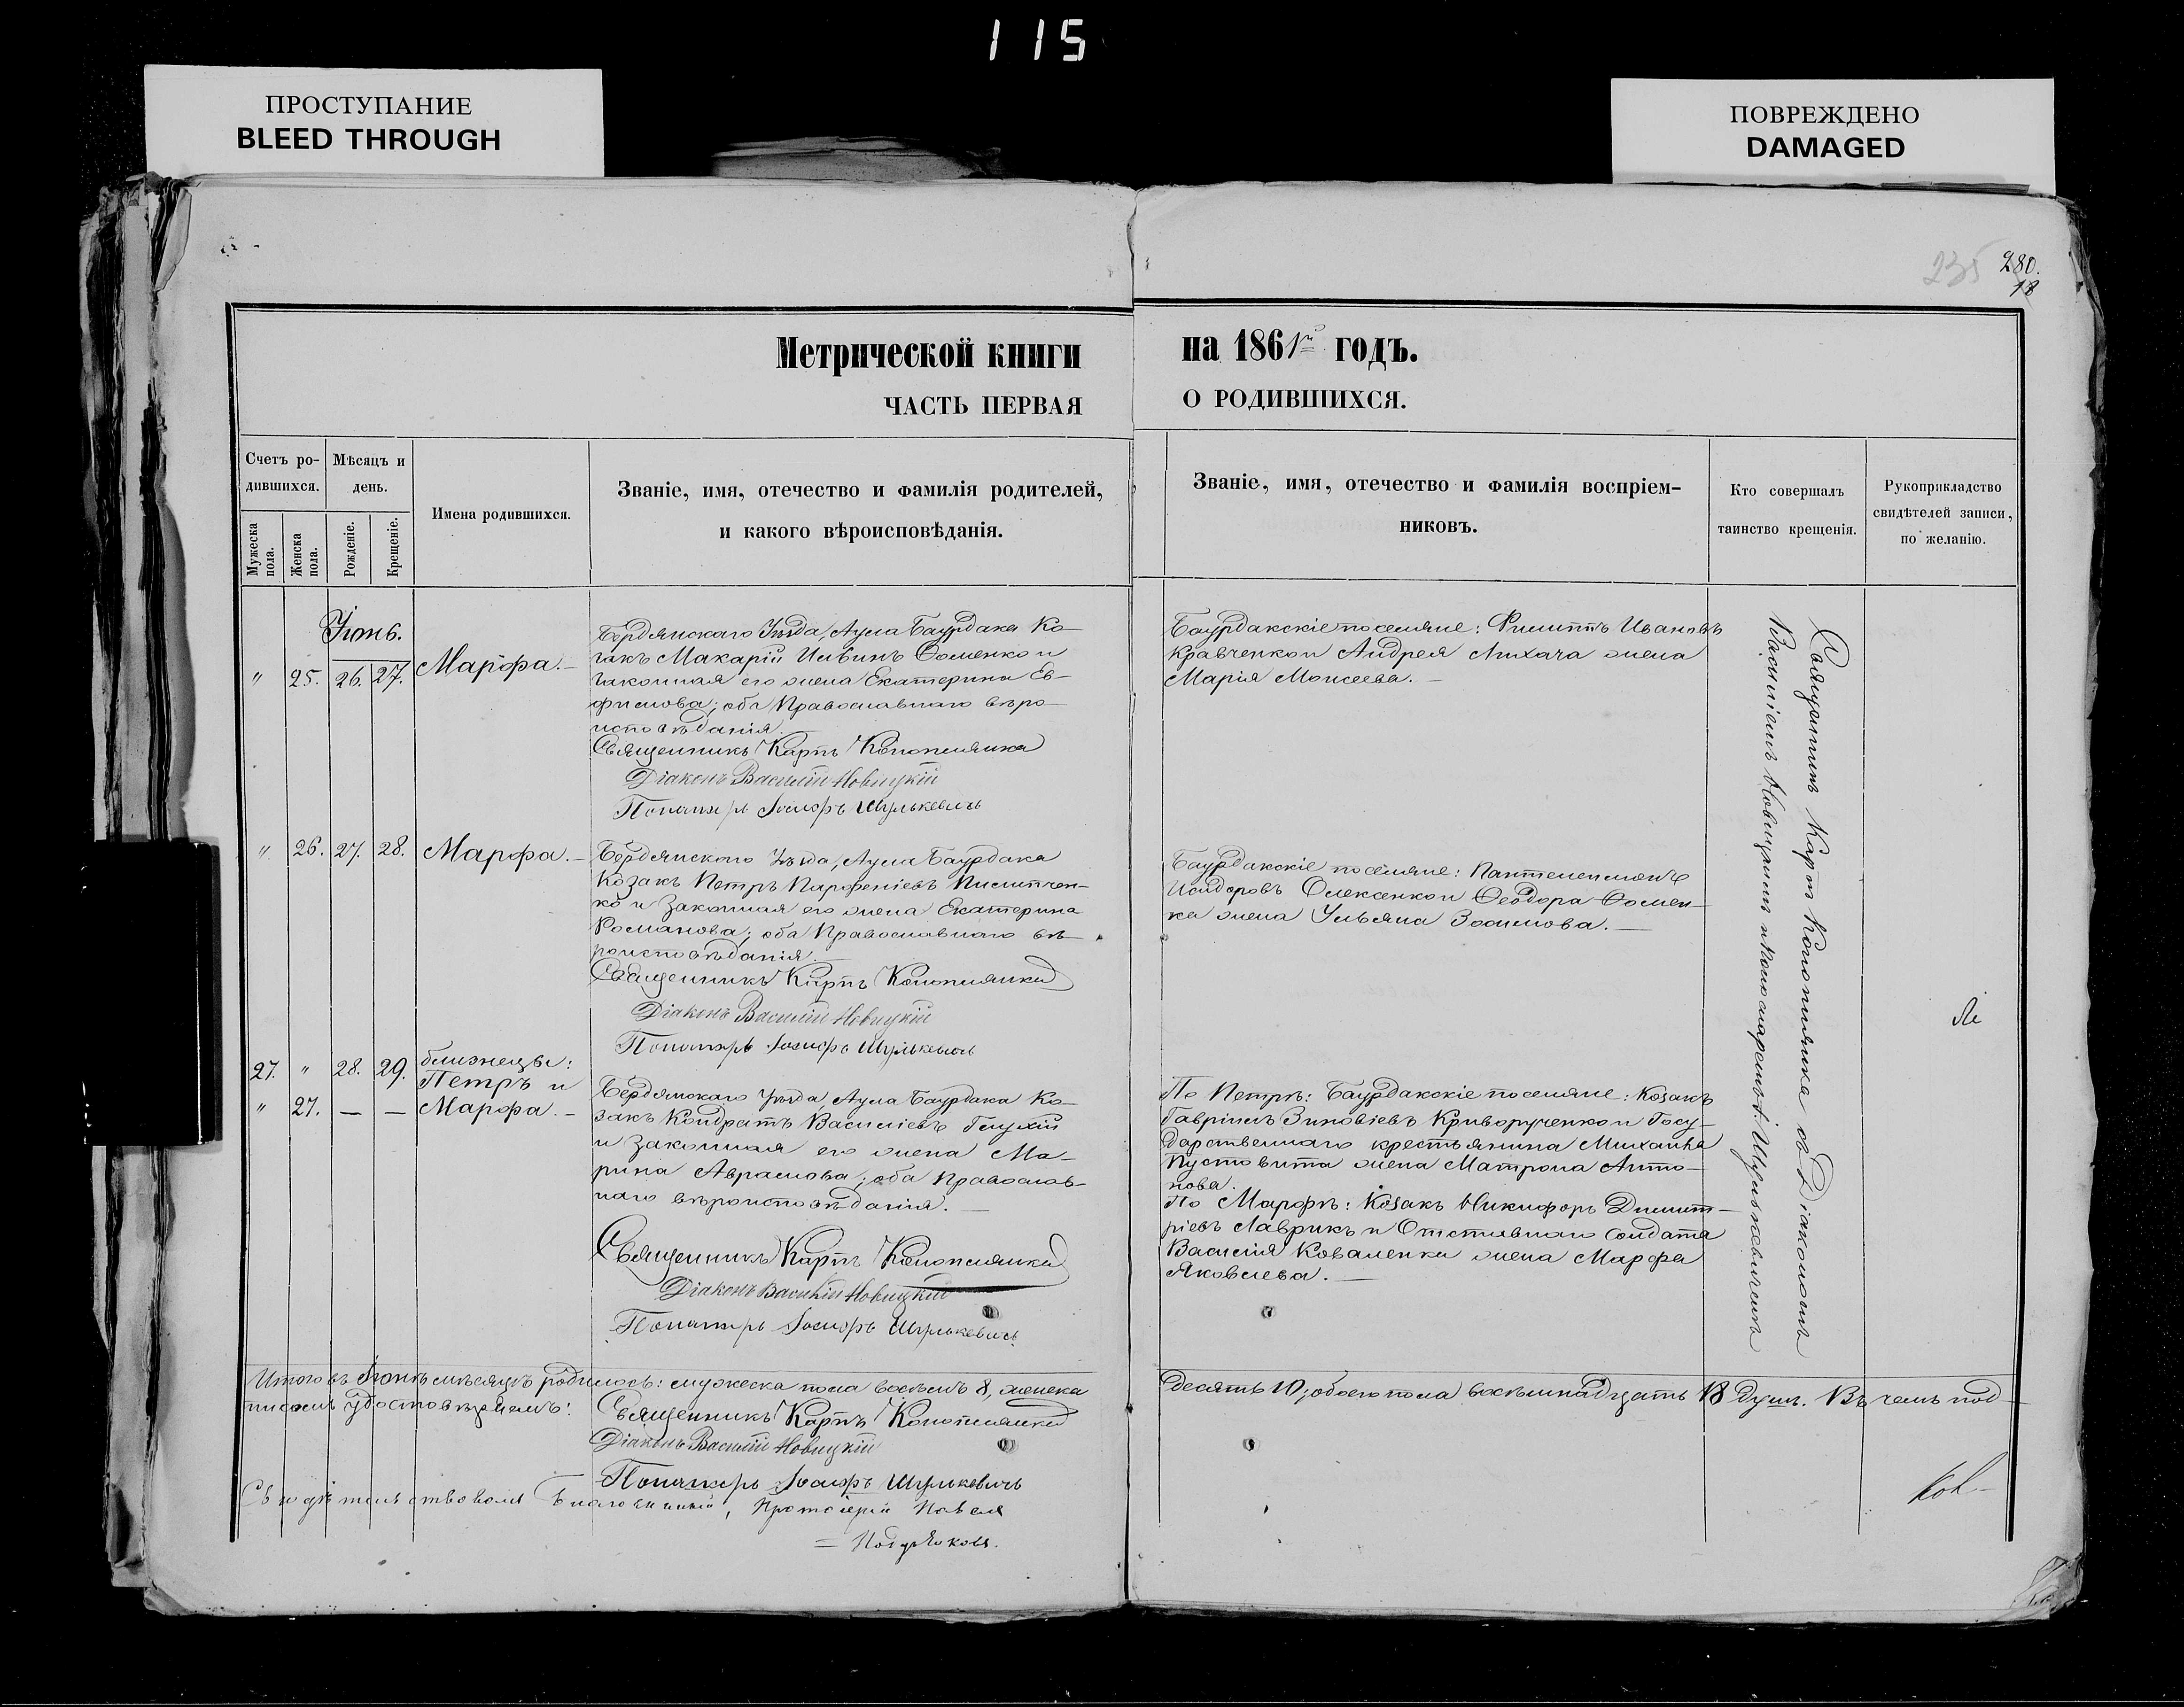 115
ПРОСТУПАНИЕ
BLEED THROUGH
ПОВРЕЖДЕНО
DAMAGED
235
280.
18
Метрической книги
на 1861го годъ.
ЧАСТЬ ПЕРВАЯ
О РОДИВШИХСЯ.
Счетъ ро-
дившихся.
Мѣсяцъ и
день.
Мужеска
пола.
Женска
пола.
Рожденіе.
Крещеніе.
Имена родившихся.
Званіе, имя, отечество и фамилія родителей,
и какого вѣроисповѣданія.
Званіе, имя, отечество и фамилія воспріем-
никовъ.
Кто совершалъ
таинство крещенія.
Рукоприкладство
свидѣтелей записи,
по желанію.
Іюнь.
" 25. 26. 27. Марфа.
Бердянскаго Уѣзда, Аула Баурдака Ко-
закъ Макарій Ильинъ Ѳоменко и
законная его жена Екатерина Ев-
фимова; оба Православнаго вѣро-
исповѣданія.
Священникъ Карпъ Коноплянка
Діаконъ Василій Новицкій
Пономарь Іосифъ Шулькевичь
Баурдакскіе поселяне: Филиппъ Ивановъ
Кравченко и Андрея Лихача жена
Марія Моисеева.
" 26. 27. 28. Марфа.
Бердянскаго Уѣзда, Аула Баурдака
Козакъ Петръ Парфеніевъ Пилипчен-
ко и законная его жена Екатерина
Романова; оба Православнаго вѣ-
роисповѣданія.
Священникъ Карпъ Коноплянка
Діаконъ Василій Новицкій
Пономарь Іосифъ Шулькевичь
Баурдакскіе поселяне: Пантелеимонъ
Исидоровъ Олексенко и Ѳеодора Ѳомен-
ка жена Ульяна Зосимова.
27. " 28. 29. близнецы:
Петръ и
" 27. — — Марфа.
Бердянскаго Уѣзда Аула Баурдака Ко-
закъ Кондратъ Василіевъ Глухій
и законная его жена Ма-
рина Аврамова; оба Православ-
наго вѣроисповѣданія.
Священникъ Карпъ Коноплянка
Діаконъ Василій Новицкій
Пономарь Іосифъ Шулькевичь
По Петрѣ: Баурдакскіе поселяне: Козакъ
Гавріилъ Зиновіевъ Криворученко и Госу-
дарственнаго крестьянина Михаила
Пустовита жена Матрона Анто-
нова.
По Марфѣ: Козакъ Никифоръ Димит-
ріевъ Лаврикъ и Отставнаго солдата
Василія Коваленка жена Марфа
Яковлева.
Священникъ Карпъ Коноплянка съ Діакономъ
Василіемъ Новицкимъ и Пономаремъ Шулькевичемъ
Итого въ Іюнѣ мѣсяцѣ родилось: мужеска пола восемь 8, женска
десять 10, обоего пола восемнадцать 18 душъ. Въ чемъ под-
писомъ удостовѣряемъ:
Священникъ Карпъ Коноплянка
Діаконъ Василій Новицкій
Пономарь Іосифъ Шулькевичь
Свидѣтельствовалъ Благочинный, Протоіерей Павелъ